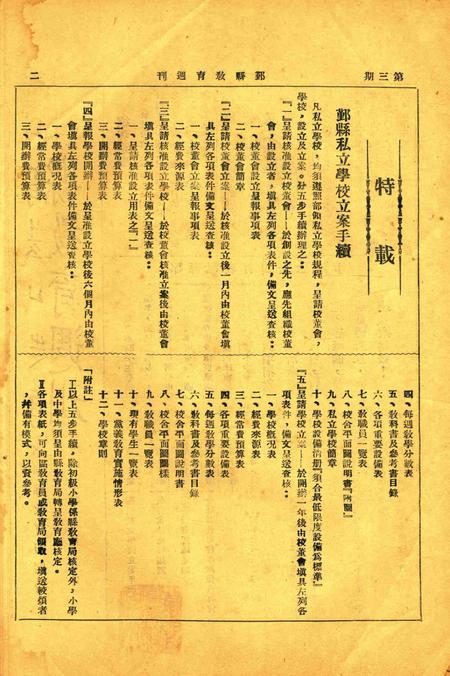 第三期
鄞縣教育週刊
二
特載
鄞縣私立學校立案手續
凡私立學校，均須遵照部頒私立學校規程，呈請校董會，
學校，設立及立案。分五步手續辦理之：
『一』呈請核准設立校董會——於創設之先，應先組織校董
會，由設立者，填具左列各項表件，備文呈送查核：
一、校董會設立呈報事項表
二、校董會簡章
『二』呈請核准設立校董會——於核准設立後一月內由校董會填
具左列各項表件備文呈送查核：
一、校董會立案呈報事項表
二、經費來源表
『三』呈請核准設立學校——於校董會核准立案後由校董會
填具左列各項表件備文呈送查核：
一、呈請核准設立用表之『一』
二、經常費預算表
三、開辦費預算表
『四』呈報學校開辦——於呈准設立學校後六個月內由校董
會填具左列各項表件備文呈送查核：
一、學校概况表
二、經常費預算表
三、開辦費預算表
四、每週教學分數表
五、教科書及參考書目錄
六、各項重要設備表
七、教職員一覽表
八、校舍平面圖說明書『附圖』
九、私立學校簡章
十、學校設備清册『須合最低限度設備爲標準』
『五』呈請學校立案——於開辦一年後由校董會填具左列各
項表件，備文呈送查核：
一、學校概况表
二、經費來源表
三、經常費預算表
四、各項重要設備表
五、每週教學分數表
六、教科書及參考書目錄
七、校舍平面圖說明書
八、校舍平面圖圖樣
九、教職員一覽表
十、現有學生一覽表
十一、黨義教育實施情形表
十二、學校章則
『附註』
Ｉ以上五步手續。除初級小學係縣教育局核定外，小學
及中學均須呈由縣教育局轉呈教育廳核定。
Ⅱ各項表紙，可向區教育員或教育局領取，填送較煩者
，并備有模式，以資參考。